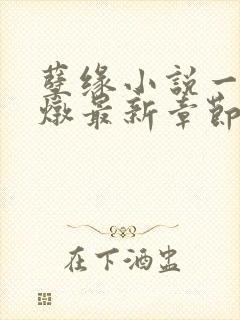 孽缘小说一
燉最新章节
在下酒盅